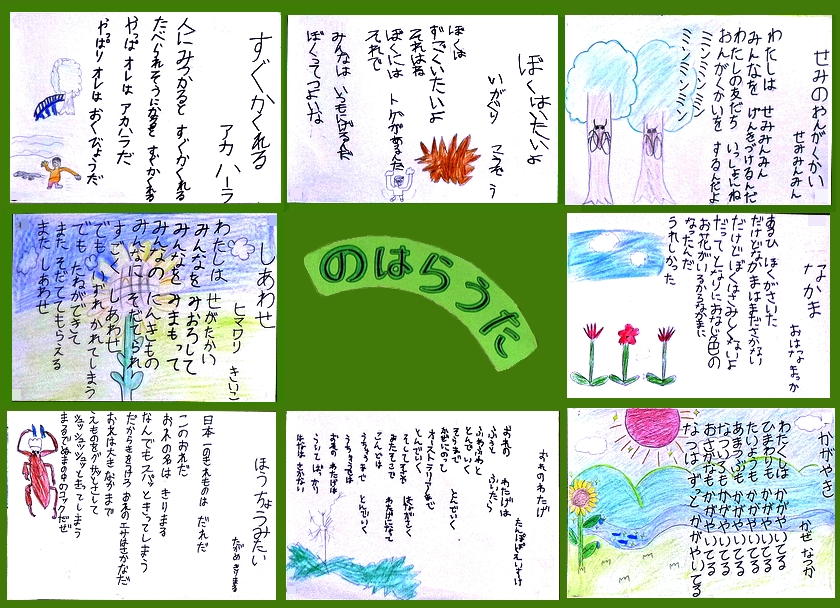 すぐかくれる
アカ ハーラ
人にみつかると すぐかくれる
たべられそうになると すぐかくれる
やっぱ オレは アカハラだ
やっぱり オレは おくびょうだ
ぼくはいたいよ
いがぐり こうぞう
ぼくは
すごくいたいよ
それはね
ぼくには トゲがあるんだ
それで
みんなは いつもにげるんだ
ぼくってつよいな
せみのおんがくかい
せみみんみん
わたしは せみみんみん
みんなを げんきづけるんだ
わたしの友だち いっしょにね
おんがくかいを するんだよ
ミンミンミンミン
ミンミンミン
しあわせ
ヒマワリ きいこ
わたしは せがたかい
みんなを みおろして
みんなを みまもって
みんなの にんきもの
みんなに そだてられ
すごく しあわせ
でも いずれ かれてしまう
でも たねができて
また そだててもらえる
また しあわせ
のはらうた
なかま
おはな まっか
あるひ ぼくがさいた
だけどなかまはまださかない
だけどぼくはさみしくないよ
だって、となりにおなじ色の
お花がいるからなかまに
なったんだ
うれしかった
ほうちょうみたい
たがめ きりまる
日本一のきれものは だれだ
このおれだ
おれの名は きりまる
なんでもスパッときってしまう
だからきをつけろ おれのエサはさかなだ
お父は大きなかまで
えものをガッシとさして
シュッシュッシュッと すってしまう
まるでぬまの中のコックだぜ
おれのわたげ
たんぽぽ えいすけ
おれの わたげは
ふうっと ふいたら
ふわふわと
とんで いく
そらまで とんでいく
かぜにのって
オーストラリアまで
とんでいく
そしてそこで はながさく
またそこで わたげになって
こんどは
うちゅうまで とんでいく
うちゅうでは
おれの わたげは
かがやき
かぜ なつか
わたくしは かがやいてる
ひまわりも かがやいてる
たいようも かがやいてる
あまつぶも かがやいてる
なついろも かがやいてる
おさかなも かがやいてる
なつは ずっと かがやいてる